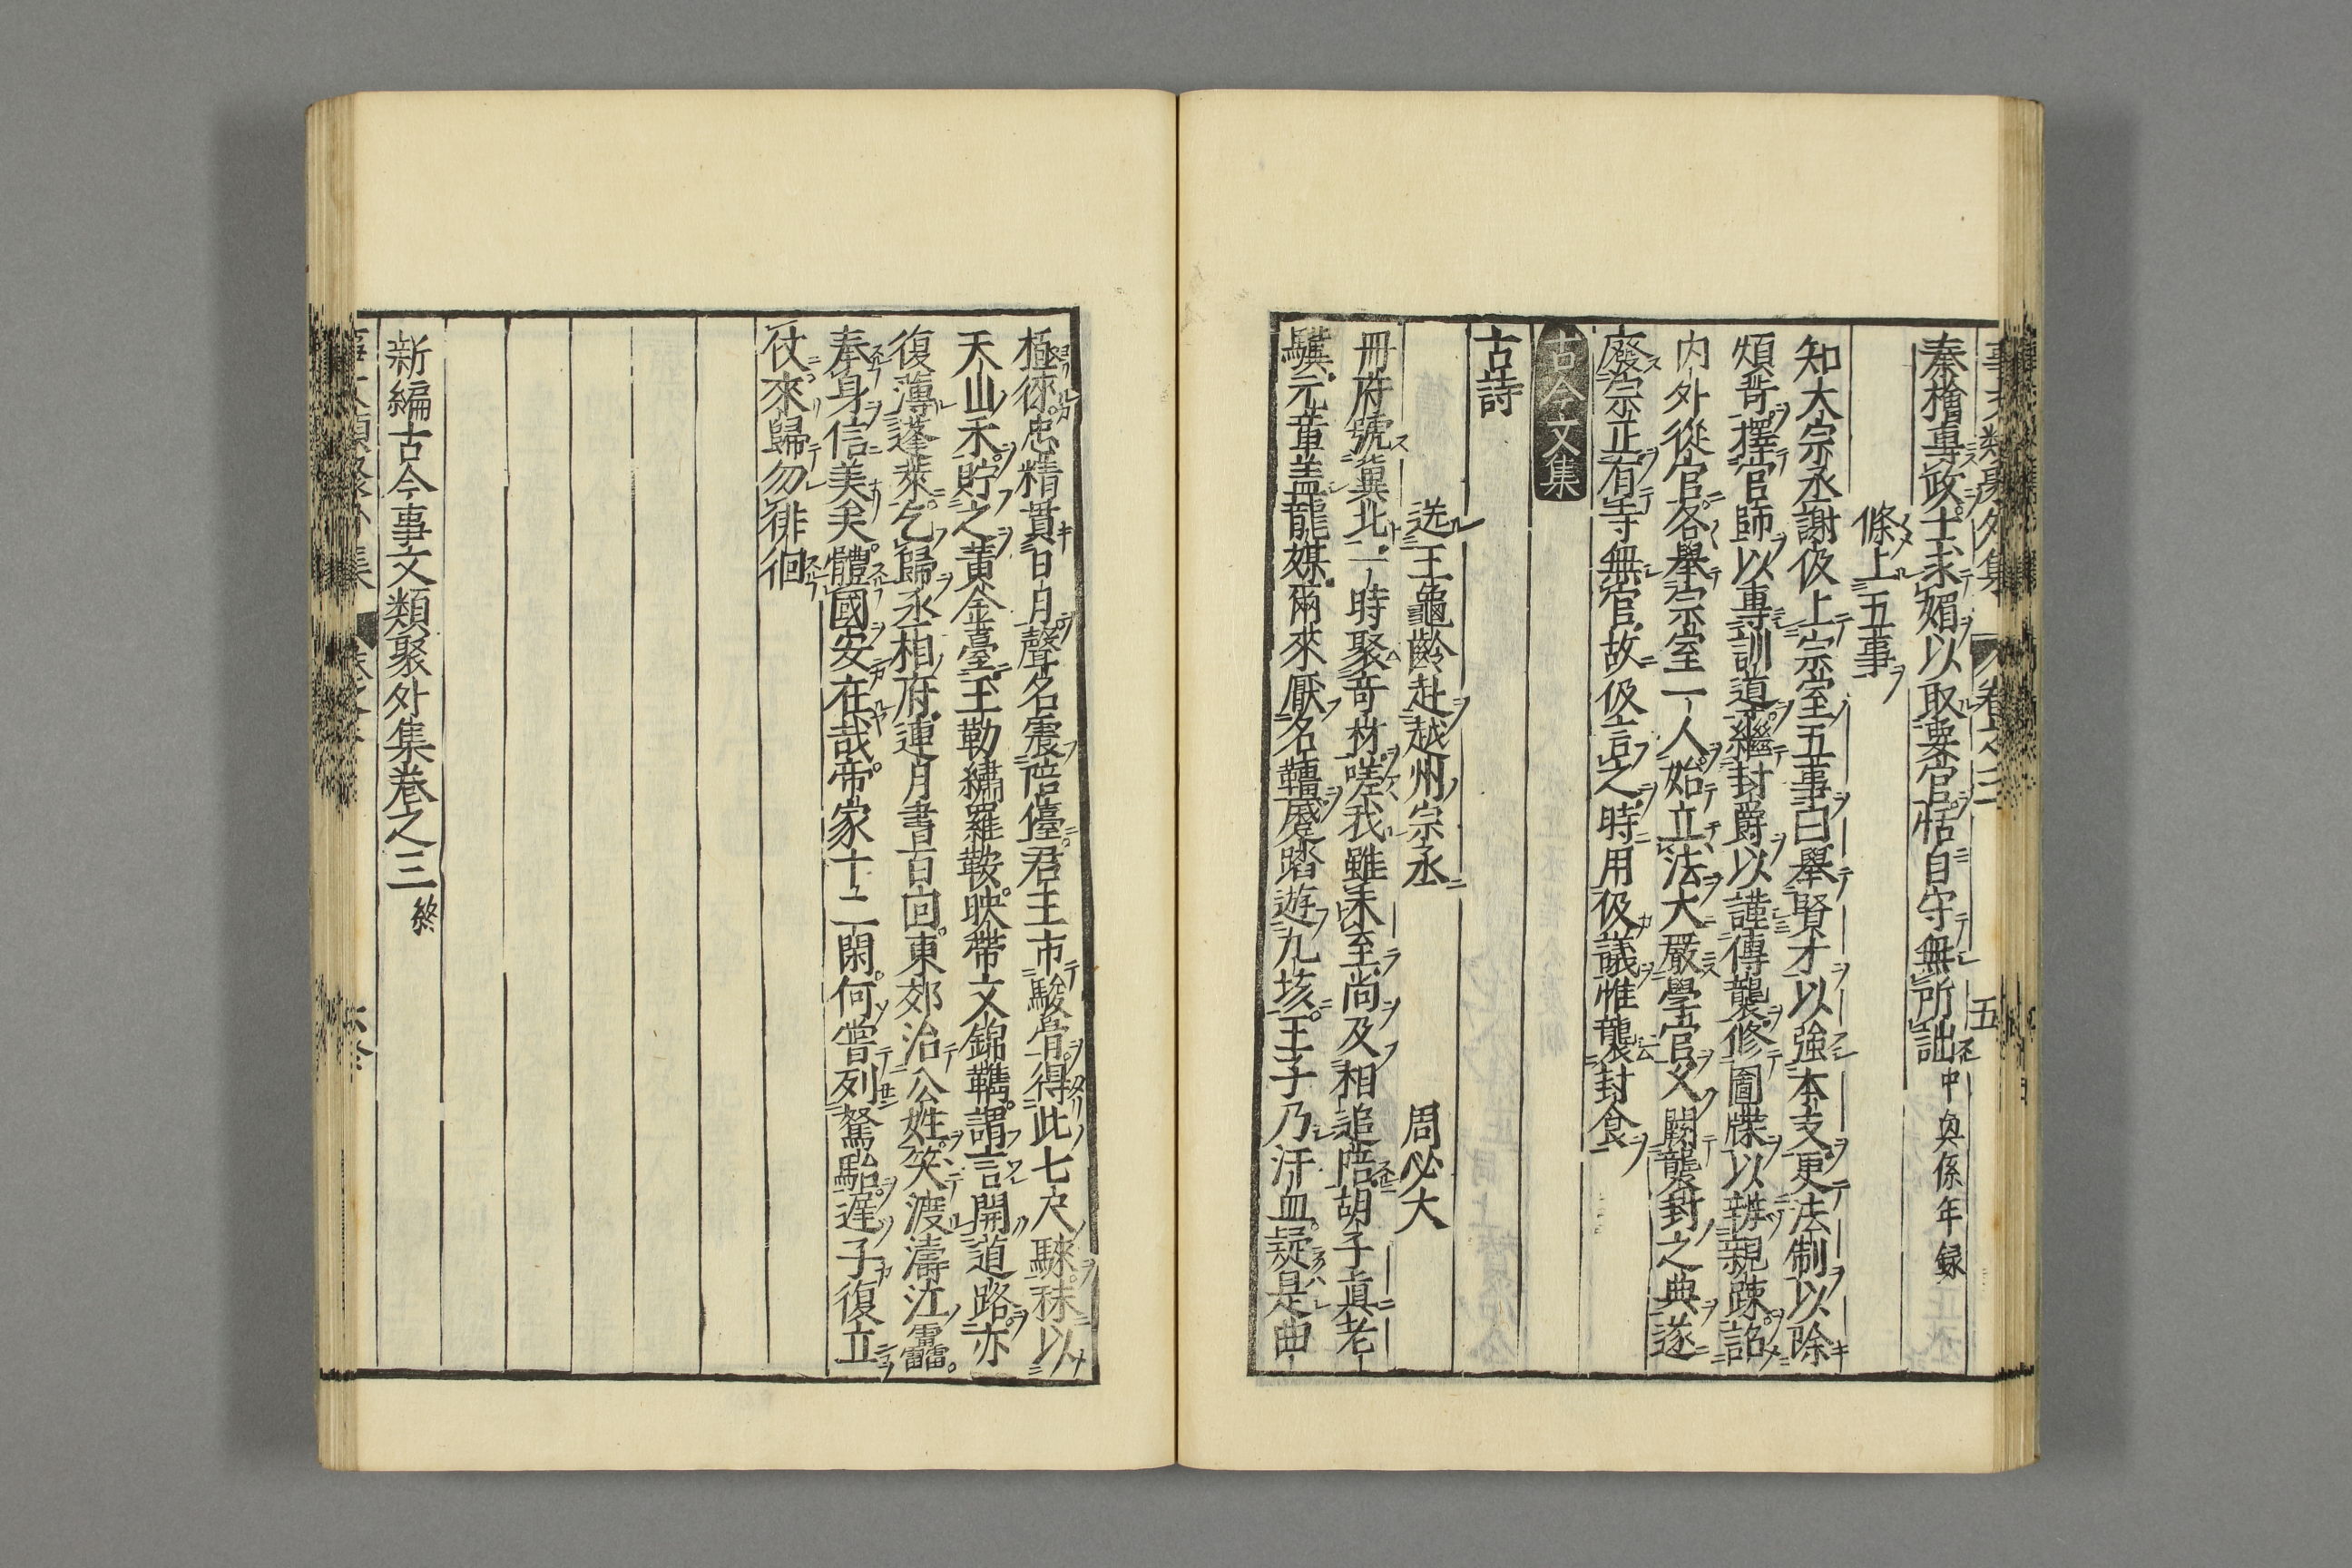 秦檜專政士求媚以取要官恬自守無所詘中奥係年録
條上五事
知大宗丞謝伋上宗室五事曰舉賢才以強本支更法制以除
煩苛擇官師以專訓導繼封爵以謹傳襲修圖牒以辨親踈詔
内外從官各舉宗室一人始立法大嚴學官又闕襲封之典遂
廢宗正有寺無官故伋言之時用伋議惟襲封食
古今文集
古詩
送王龜齡赴越州宗丞 周必大
冊府號冀北一時聚奇材嗟我雖未至尚及相追陪胡子眞老
驥元章盖龍媒兩來厭名韁蹙踏遊九垓王子乃汗血疑是曲
極徠忠精貫日月聲名震陪儓君王市駿骨得此七尺騋秣以
天山禾貯之黄金臺玉勒繡羅鞍映帶文錦韉謂言開道路亦
復薄蓬萊乞歸丞相府連月書百回東郊治公姓笑渡濤江靁
奉身信美矣體國安在哉帝家十二閑何嘗列駑駘遲子復立
仗來歸勿徘徊
新編古今事文類聚外集巻之三終